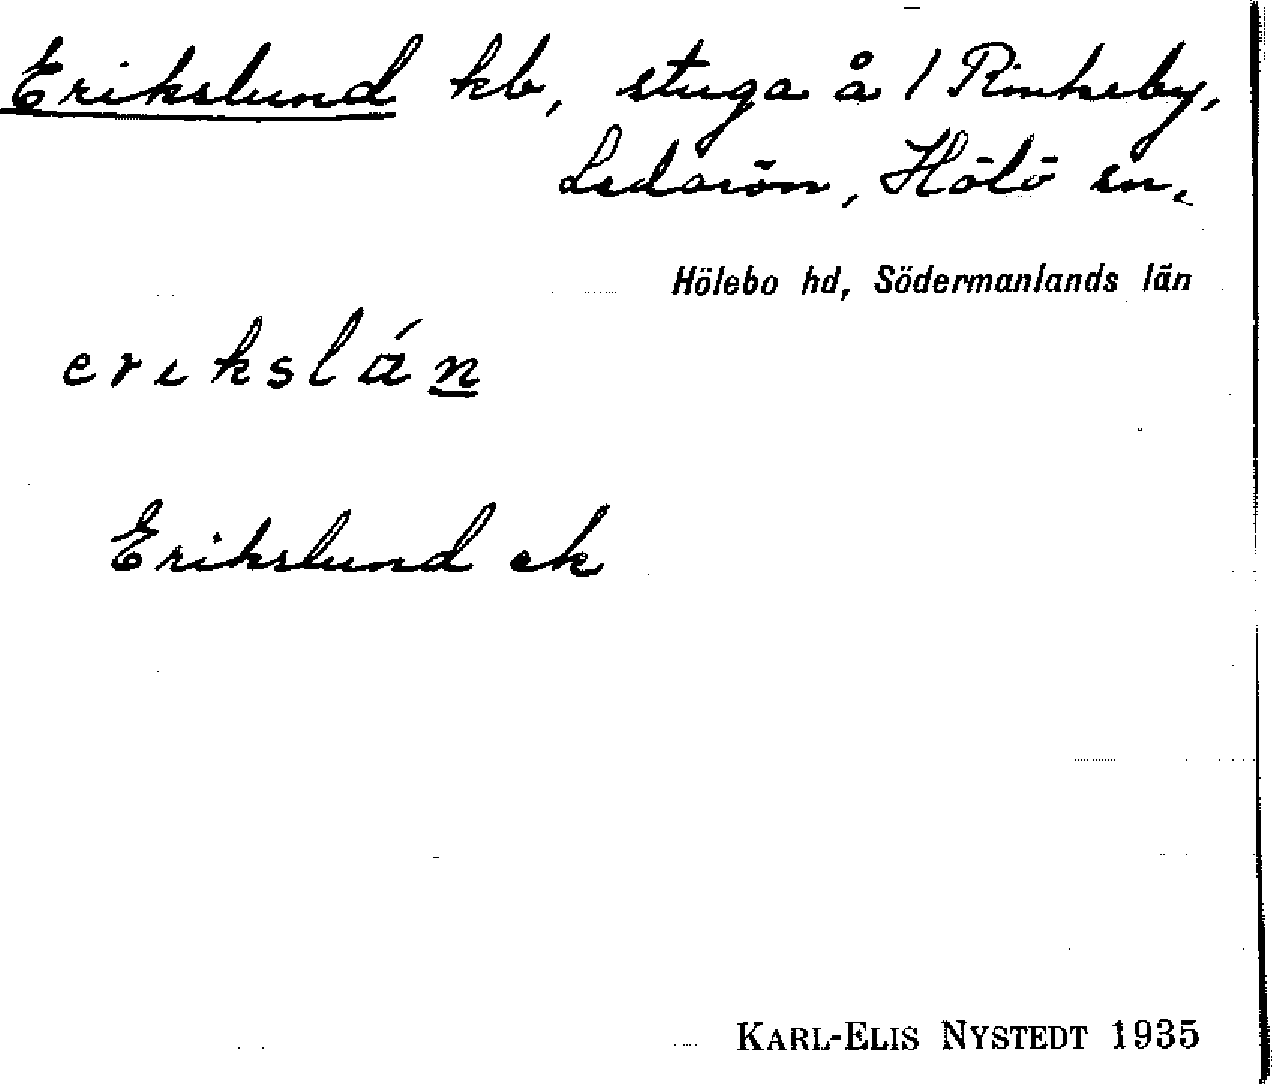 Erikslund kb, stuga å / Rinkeby,
Ledarön, Hölö sn.
Hölebo hd, Södermanlands län
erikslán
Erikslund ek
KARL-ELIS NYSTEDT 1935